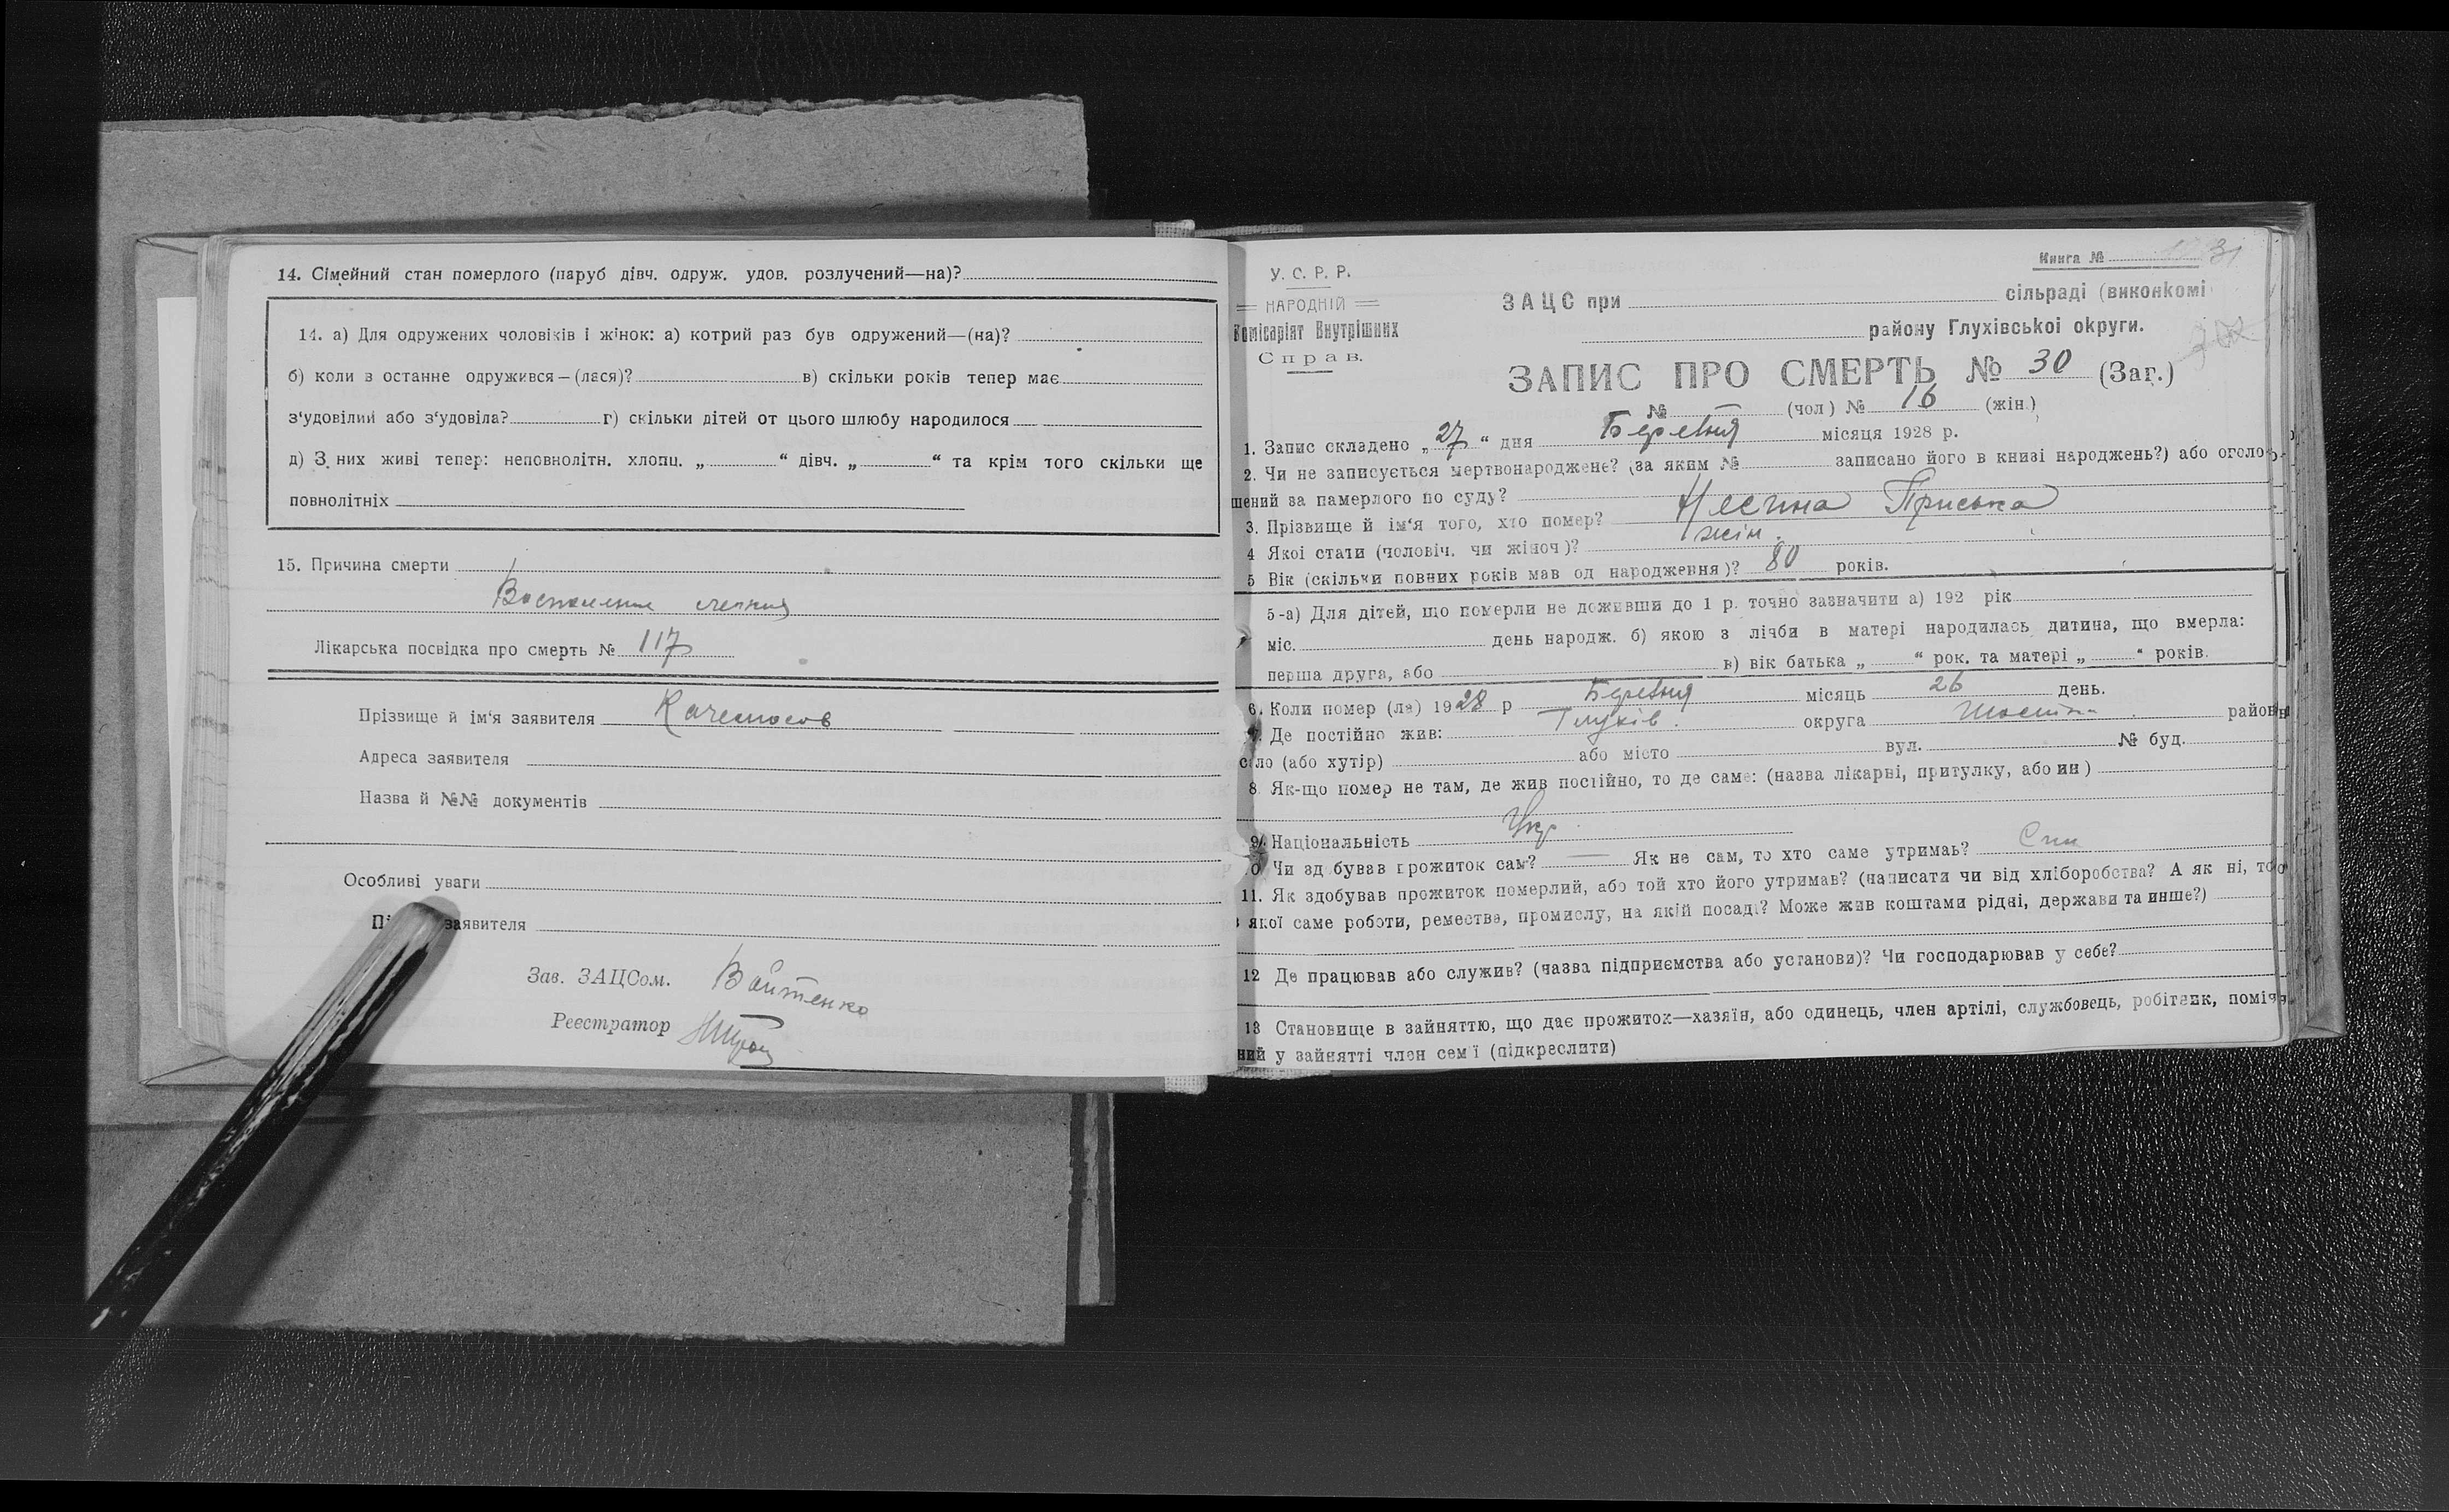 14. Сімейний стан померлого (паруб дівч. одруж. удов. розлучений—на)?
14. а) Для одружених чоловіків і жінок: а) котрий раз був одружений—(на)?
б) коли в останне одружився—(лася)? в) скільки років тепер має
з‘удовілий або з‘удовіла? г) скільки дітей от цього шлюбу народилося
д) З них живі тепер: неповнолітн. хлопц. „ “ дівч. „ “ та крім того скільки ще
повнолітніх
15. Причина смерти
Лікарська посвідка про смерть № 117
Прізвище й ім‘я заявителя
Адреса заявителя
Назва й №№ документів
Особливі уваги
заявителя
Зав. ЗАЦСом. Войтенко
Реестратор
Книга № 31
У. С. Р. Р.
НАРОДНІЙ
Комісаріят Внутрішних
Справ.
ЗАЦС при сільраді (виконкомі
району Глухівської округи.
ЗАПИС ПРО СМЕРТЬ № 30 (Заг.)
№ (чол) № 16 (жін.)
1. Запис складено „27“ дня Березня місяця 1928 р.
2. Чи не записується мертвонароджене? (за яким № записано його в книзі народжень?) або оголо-
шений за памерлого по суду?
3. Прізвище й ім‘я того, хто помер? Приська
4 Якої стати (чоловіч. чи жіноч)? жін.
5 Вік (скільки повних років мав од народження)? 80 років.
5-а) Для дітей, що померли не доживши до 1 р. точно зазначити а) 192 рік
міс. день народж. б) якою з лічби в матері народилась дитина, що вмерла:
перша друга, або в) вік батька „ “ рок. та матері „ “ років.
6. Коли помер (ла) 1928 р Березня місяць 26 день.
7. Де постійно жив: Глухів. округа Шостка район
село (або хутір) або місто вул. № буд.
8. Як-що помер не там, де жив постійно, то де саме: (назва лікарні, притулку, або ин)
9. Національність Укр
10 Чи здобував прожиток сам? — Як не сам, то хто саме утримав? Син
11. Як здобував прожиток померлий, або той хто його утримав? (написати чи від хліборобства? А як ні, то
з якої саме роботи, ремества, промислу, на якій посаді? Може жив коштами рідні, держави та инше?)
12 Де працював або служив? (назва підприємства або установи)? Чи господарював у себе?
13 Становище в зайняттю, що дає прожиток—хазяїн, або одинець, член артілі, службовець, робітник, поміч-
ний у зайнятті член сем‘ї (підкреслити)